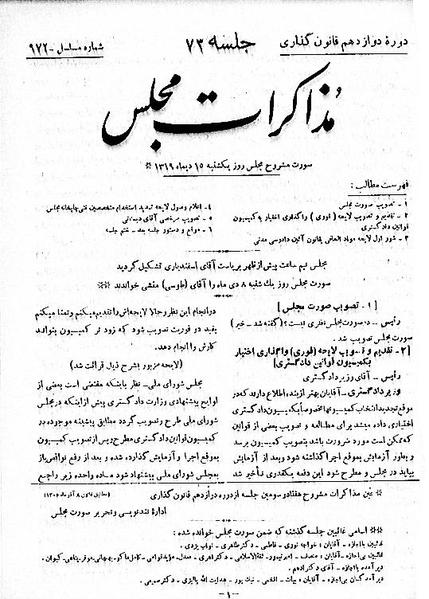 دورهٔ دوازدهم قانون گذاری
جلسه ۷۳
شماره مسلسل - ۹۷۲
مذاکرات مجلس
صورت مشروح مجلس روز یکشنبه ۱۵ دیماه ۱۳۱۹
فهرست مطالب:
۱ - تصویب صورت مجلس
۲ - تقدیم و تصویب لایحه (فوری) واگذاری اختیار به کمیسیون
قوانین دادگستری
۳ - شور اول لایحه مواد الحاقی بقانون آئین دادرسی مدنی
۴ - اعلام وصول لایحه تمدید استخدام متخصصین فنی چاپخانه مجلس
۵ - تصویب مرخصی آقای
۶ - موقع و دستور جلسه بعد - ختم جلسه
مجلس نیم ساعت پیش از ظهر بریاست آقای اسفندیاری تشکیل گردید
صورت مجلس روز یک شنبه ۸ دی ماه را آقای (طوسی) منشی خواندند
[۱ - تصویب صورت مجلس]
رئیس - در صورت مجلس نظری نیست؟ (گفته شد - خیر)
صورت مجلس تصویب شد.
[۲ - تقدیم و تصویب لایحه (فوری) واگذاری اختیار
بکمیسیون قوانین دادگستری]
رئیس - آقای وزیر دادگستری
وزیر دادگستری - آقایان بهتر از بنده اطلاع دارند که در
موقع تجدید انتخاب کمیسیونها
اختیاری داده میشد برای مطالعه و تصویب بعضی از قوانین
که ممکن است مورد ضرورت باشد بتصویب کمیسیون برسد
و بطور آزمایش بموقع اجرا گذاشته شود و بعد از آزمایش
بیاید در مجلس و مطرح شود این دفعه یکقدری تأخیر شد
در انجام این نظر و حالا لایحه‌اش را تقدیم میکنم و تمنا میکنم
بقید دو فوریت تصویب شود که زودتر کمیسیون بتواند
کارش را انجام دهد.
(لایحه مزبور بشرح ذیل قرائت شد)
مجلس شورای ملی - نظر باینکه مقتضی است بعضی از
لوایح پیشنهادی وزارت دادگستری پیش از اینکه در مجلس
شورای ملی طرح و تصویب گردد مطابق پیشینه موجوده در
کمیسیون قوانین دادگستری مطرح و پس از تصویب کمیسیون
بموقع اجرا و آزمایش گذارده شده و بعد از رفع نواقص باز
بمجلس شورای ملی پیشنهاد شود ماده واحده زیر راجع
عین مذاکرات مشروح هفتاد و سومین جلسه از دوره دوازدهم قانون گذاری
ادارهٔ تندنویسی و تحریر صورت مجلس
اسامی غائبین جلسه گذشته که ضمن صورت مجلس خوانده شده:
- ۱ -